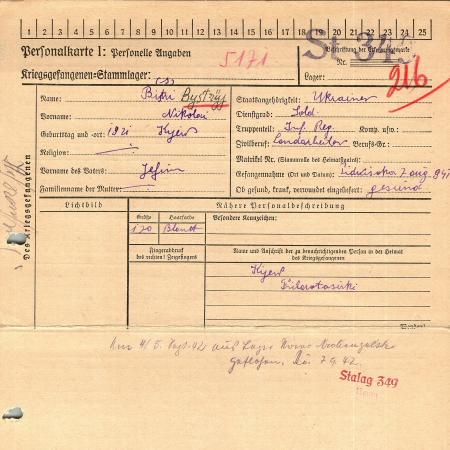 1 2 3 4 5 6 7 8 9 10 11 12 13 14 15 16 17 18 19 20 21 22 23 24 25
Personalkarte I: Personelle Angaben
5171
St 349
Beschriftung der Erkennungsmarke
Nr. 216
Kriegsgefangenen=Stammlager:
Lager:
Des Kriegsgefangenen
Name: Bistri Bystryj
Vorname: Nikolai
Geburtstag und -ort: 1921 Kyjew
Religion:
Vorname des Vaters: Jefim
Familienname der Mutter:
Staatsangehörigkeit: Ukrainer
Dienstgrad: Sold.
Truppenteil: Inf. Reg. Komp. usw.:
Zivilberuf: Landarbeiter Berufs-Gr.:
Matrikel Nr. (Stammrolle des Heimatstaates):
Gefangennahme (Ort und Datum): 7. aug. 941
Ob gesund, krank, verwundet eingeliefert: gesund
Lichtbild
Nähere Personalbeschreibung
Größe Haarfarbe Besondere Kennzeichen:
170 Blond
Fingerabdruck
des rechten! Zeigefingers
Name und Anschrift der zu benachrichtigenden Person in der Heimat
des Kriegsgefangenen
Kyjew
4/5. Sept. 42 aus Lager
7.9.42.
Stalag 349